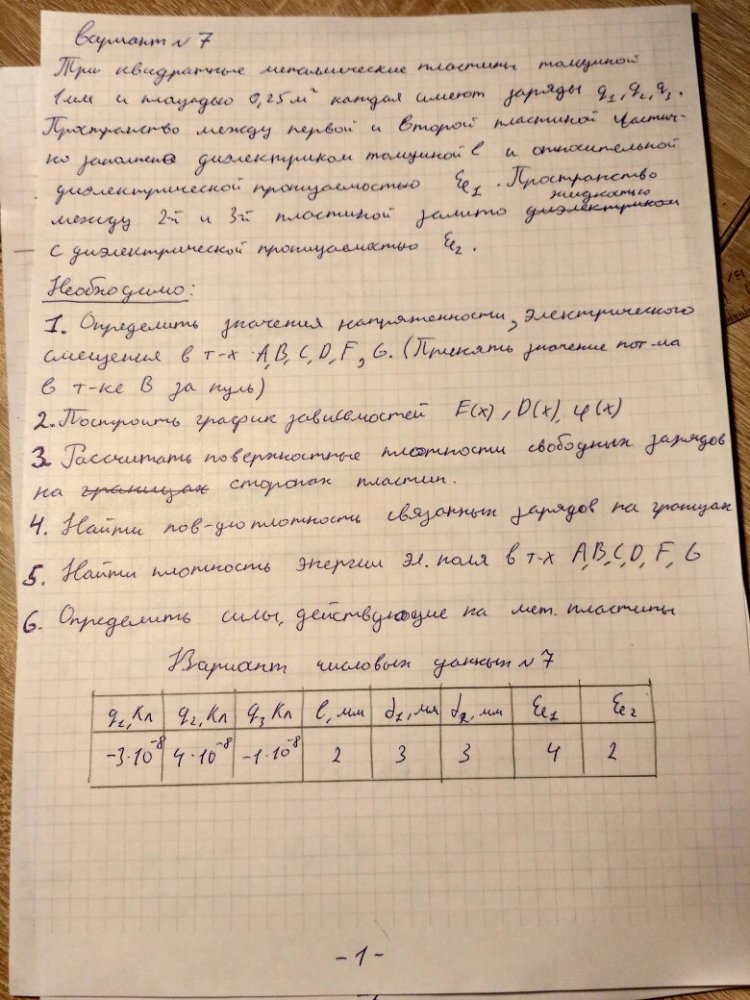 Вариант № 7
Три квадратные металлические пластины толщиной
1мм и площадью 0,25 м² каждая имеют заряды q₁, q₂, q₃.
Пространство между первой и второй пластиной частич-
но заполнено диэлектриком толщиной l и относительной
диэлектрической проницаемостью εe₁. Пространство
жидкостью
между 2й и 3й пластиной залито диэлектриком
с диэлектрической проницаемостью εe₂.
Необходимо:
1. Определить значения напряженности, электрического
смещения в т-х A, B, C, D, F, G. (Принять значение пот-ла
в т-ке B за нуль)
2. Построить график зависимостей E(x), D(x), φ(x)
3. Рассчитать поверхностные плотности свободных зарядов
на границах сторонах пластин.
4. Найти пов-ую плотность связанных зарядов на границах
5. Найти плотность энергии эл. поля в т-х A, B, C, D, F, G
6. Определить силы, действующие на мет. пластины
Вариант числовых данных № 7
q₁, Кл q₂, Кл q₃ Кл l, мм d₁, мм d₂, мм εe₁ εe₂
-3·10⁻⁸ 4·10⁻⁸ -1·10⁻⁸ 2 3 3 4 2
-1-